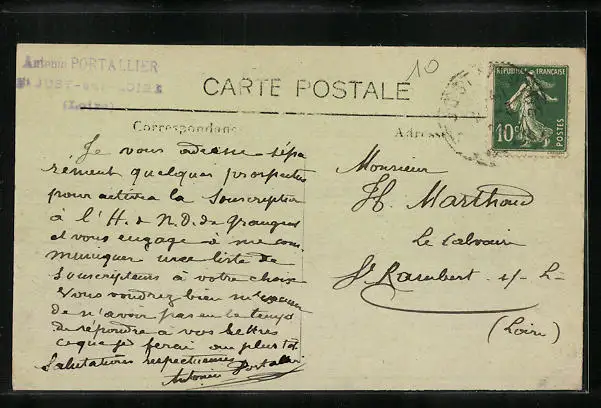 Antonin PORTALLIER
St JUST-sur-LOIRE
(Loire)
10
CARTE POSTALE
REPUBLIQUE FRANÇAISE
10c
POSTES
Correspondance
Adresse
Je vous adresse sépa
rément quelques prospectus
pour activer la souscription
à l'H. de N. D. de
et vous engage à me com
muniquer une liste de
souscripteurs à votre choix
Vous voudrez bien m'excuser
de n'avoir pas eu le temps
de répondre à vos lettres
ce que je ferai au plus tôt
Salutations respectueuses
Antonin Portallier
Monsieur
Marthoud
Le Calvaire
St Rambert s/-L-
(Loire)